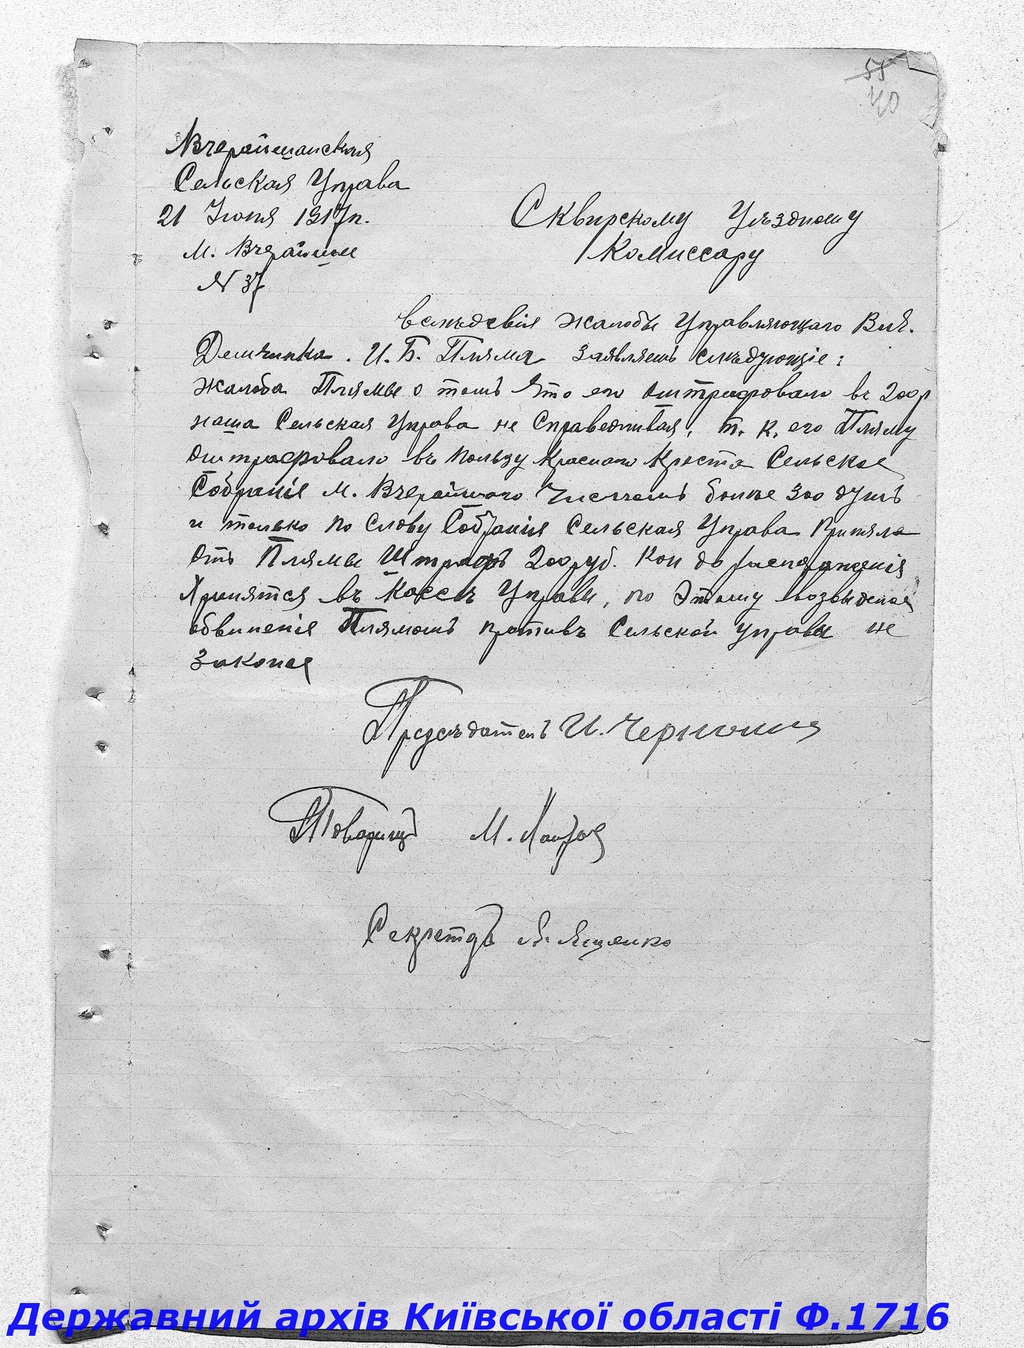 55
40
Вчерайшанская
Сельская Управа
21 Июня 1917 г.
М. Вчерайше
N 37
Сквирскому Уѣздному
Комиссару
вслѣдсвія жалобы Управляющаго Вич.
И. Б. Пляма заявляетъ слѣдующіе:
жалоба Плямы о томъ что его оштрафовало въ 200р
наша Сельская Управа не справедливая, т. к. его Пляму
оштрафовало въ пользу Краснаго Креста Сельское
Собраніе м. Вчерайшаго числомъ более 300 душъ
и только по слову Собранія Сельская Управа приняла
отъ Плямы штрафъ 200 руб. кои до
хранятся въ кассѣ Управы, по этому
обвиненія Плямомъ противъ Сельской управы не
законое
Предсѣдатель И.
Товарищ М.
Секретар Ященко
Державний архів Київської області Ф.1716